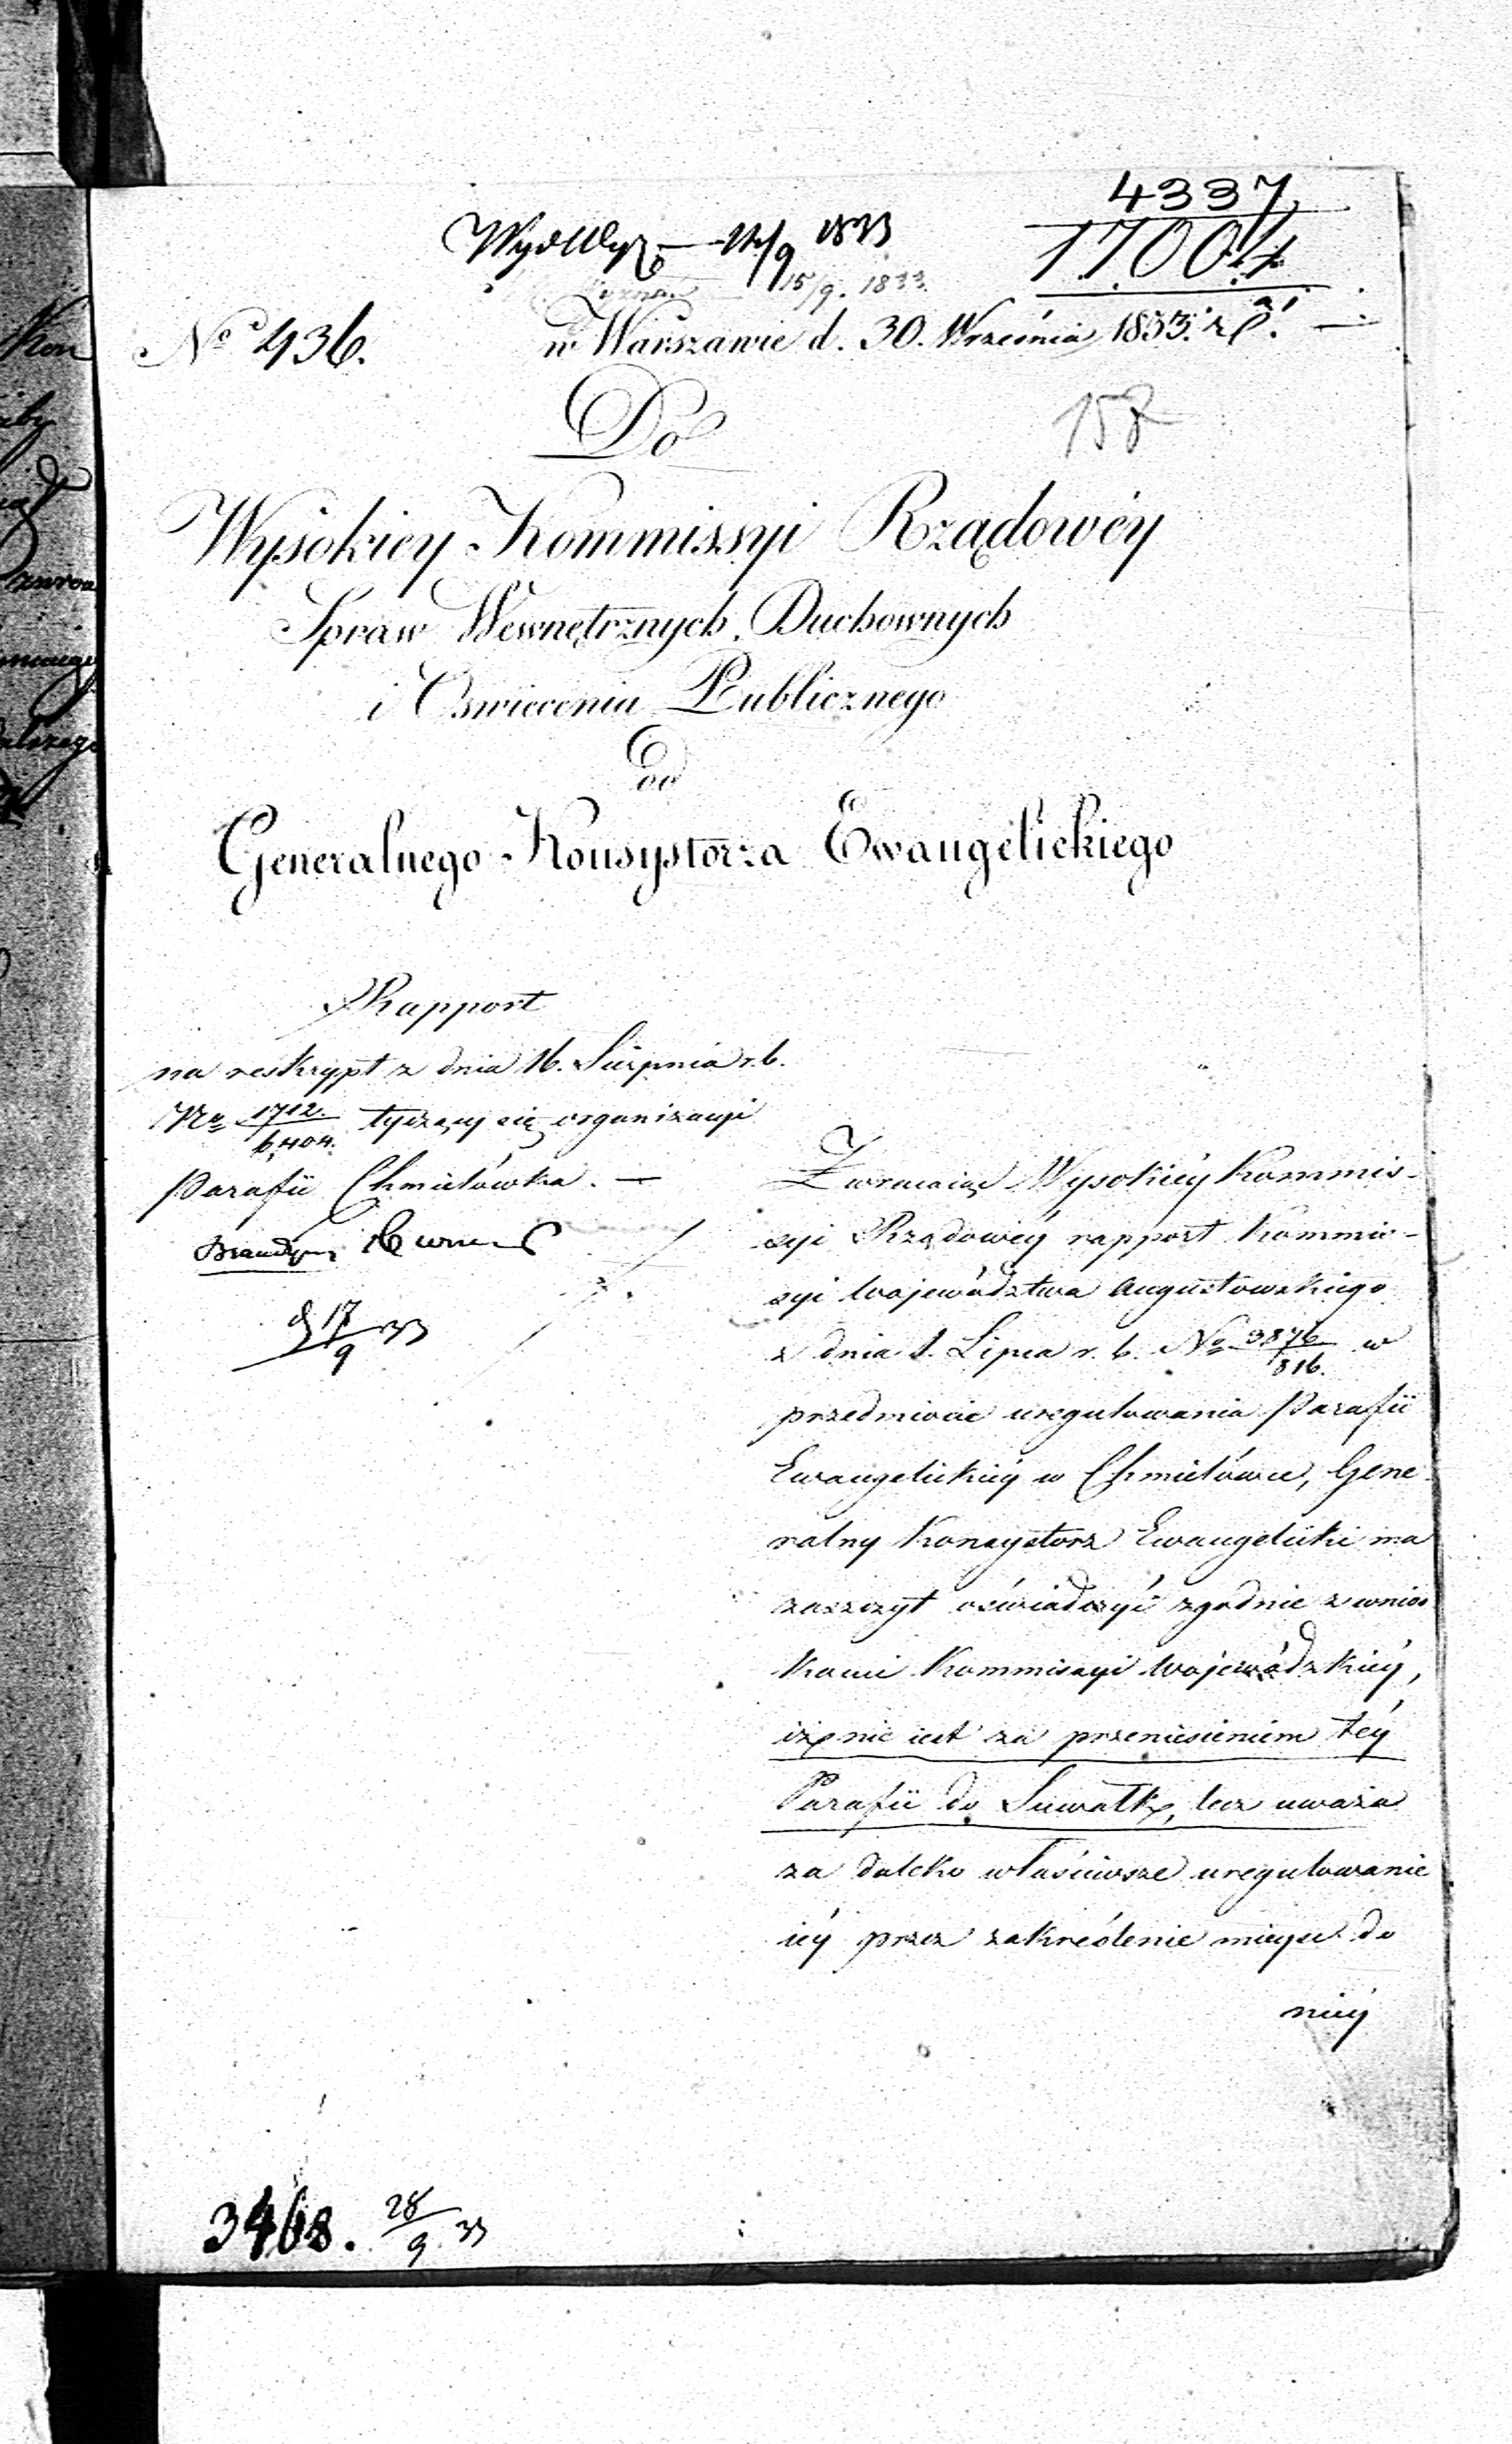 4337
17004
Wyd Wyz — 14/9 1833
15/9. 1833.
No 436.
w Warszawie d. 30. Września 1833.
158
Do
Wysokiey Kommissyi Rządowéy
Spraw Wewnętrznych, Duchownych
i Oswiecenia Publicznego
od
Generalnego Konsystorza Ewangelickiego
Rapport
na reskrypt z dnia 16. Sierpnia r. b.
No 1712./6404. tyczący się organizacyi
Parafii Chmielówka. —
d 17/9 33
Zwracaiąc Wysokiéy Kommis-
syi Rządowéy rapport Kommis-
syi Województwa Augustowskiego
z dnia 1. Lipca r. b. No 3876/816. w
przedmiocie uregulowania Parafii
Ewangelickiéy w Chmielówce, Gene-
ralny Konsystorz Ewangelicki ma
zaszczyt oświadczyć zgodnie z wnios
kami Kommissyi Wojewódzkiéy,
iż nie iest za przeniesieniem téy
Parafii do Suwałk, lecz uważa
za daleko właściwsze uregulowanie
iéy przez zakreślenie mieysc do
niéy
3468. 28/9 33
Kon